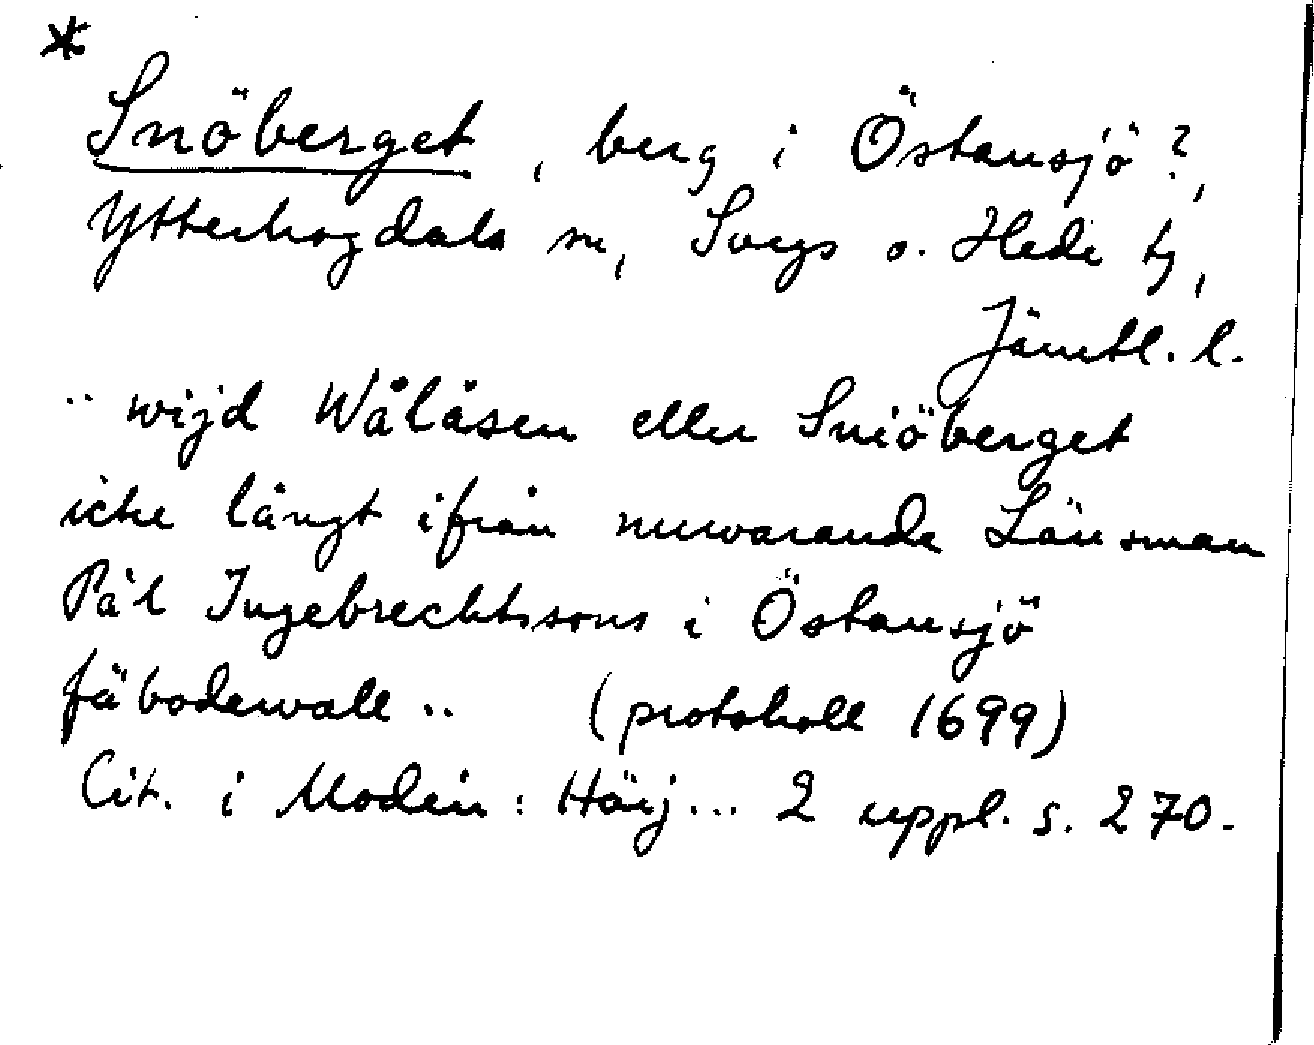 *
Snöberget, berg i Östansjö?,
Ytterhogdals sn, Svegs o. Hede tg,
Jämtl. l.
.. wijd Wålåsen eller Sniöberget
icke långt ifrån nuwarande Länsman
Pål Ingebrechtssons i Östansjö
fäbodewall .. (protokoll 1699)
Cit. i Modin: Härj... 2 uppl. s. 270.